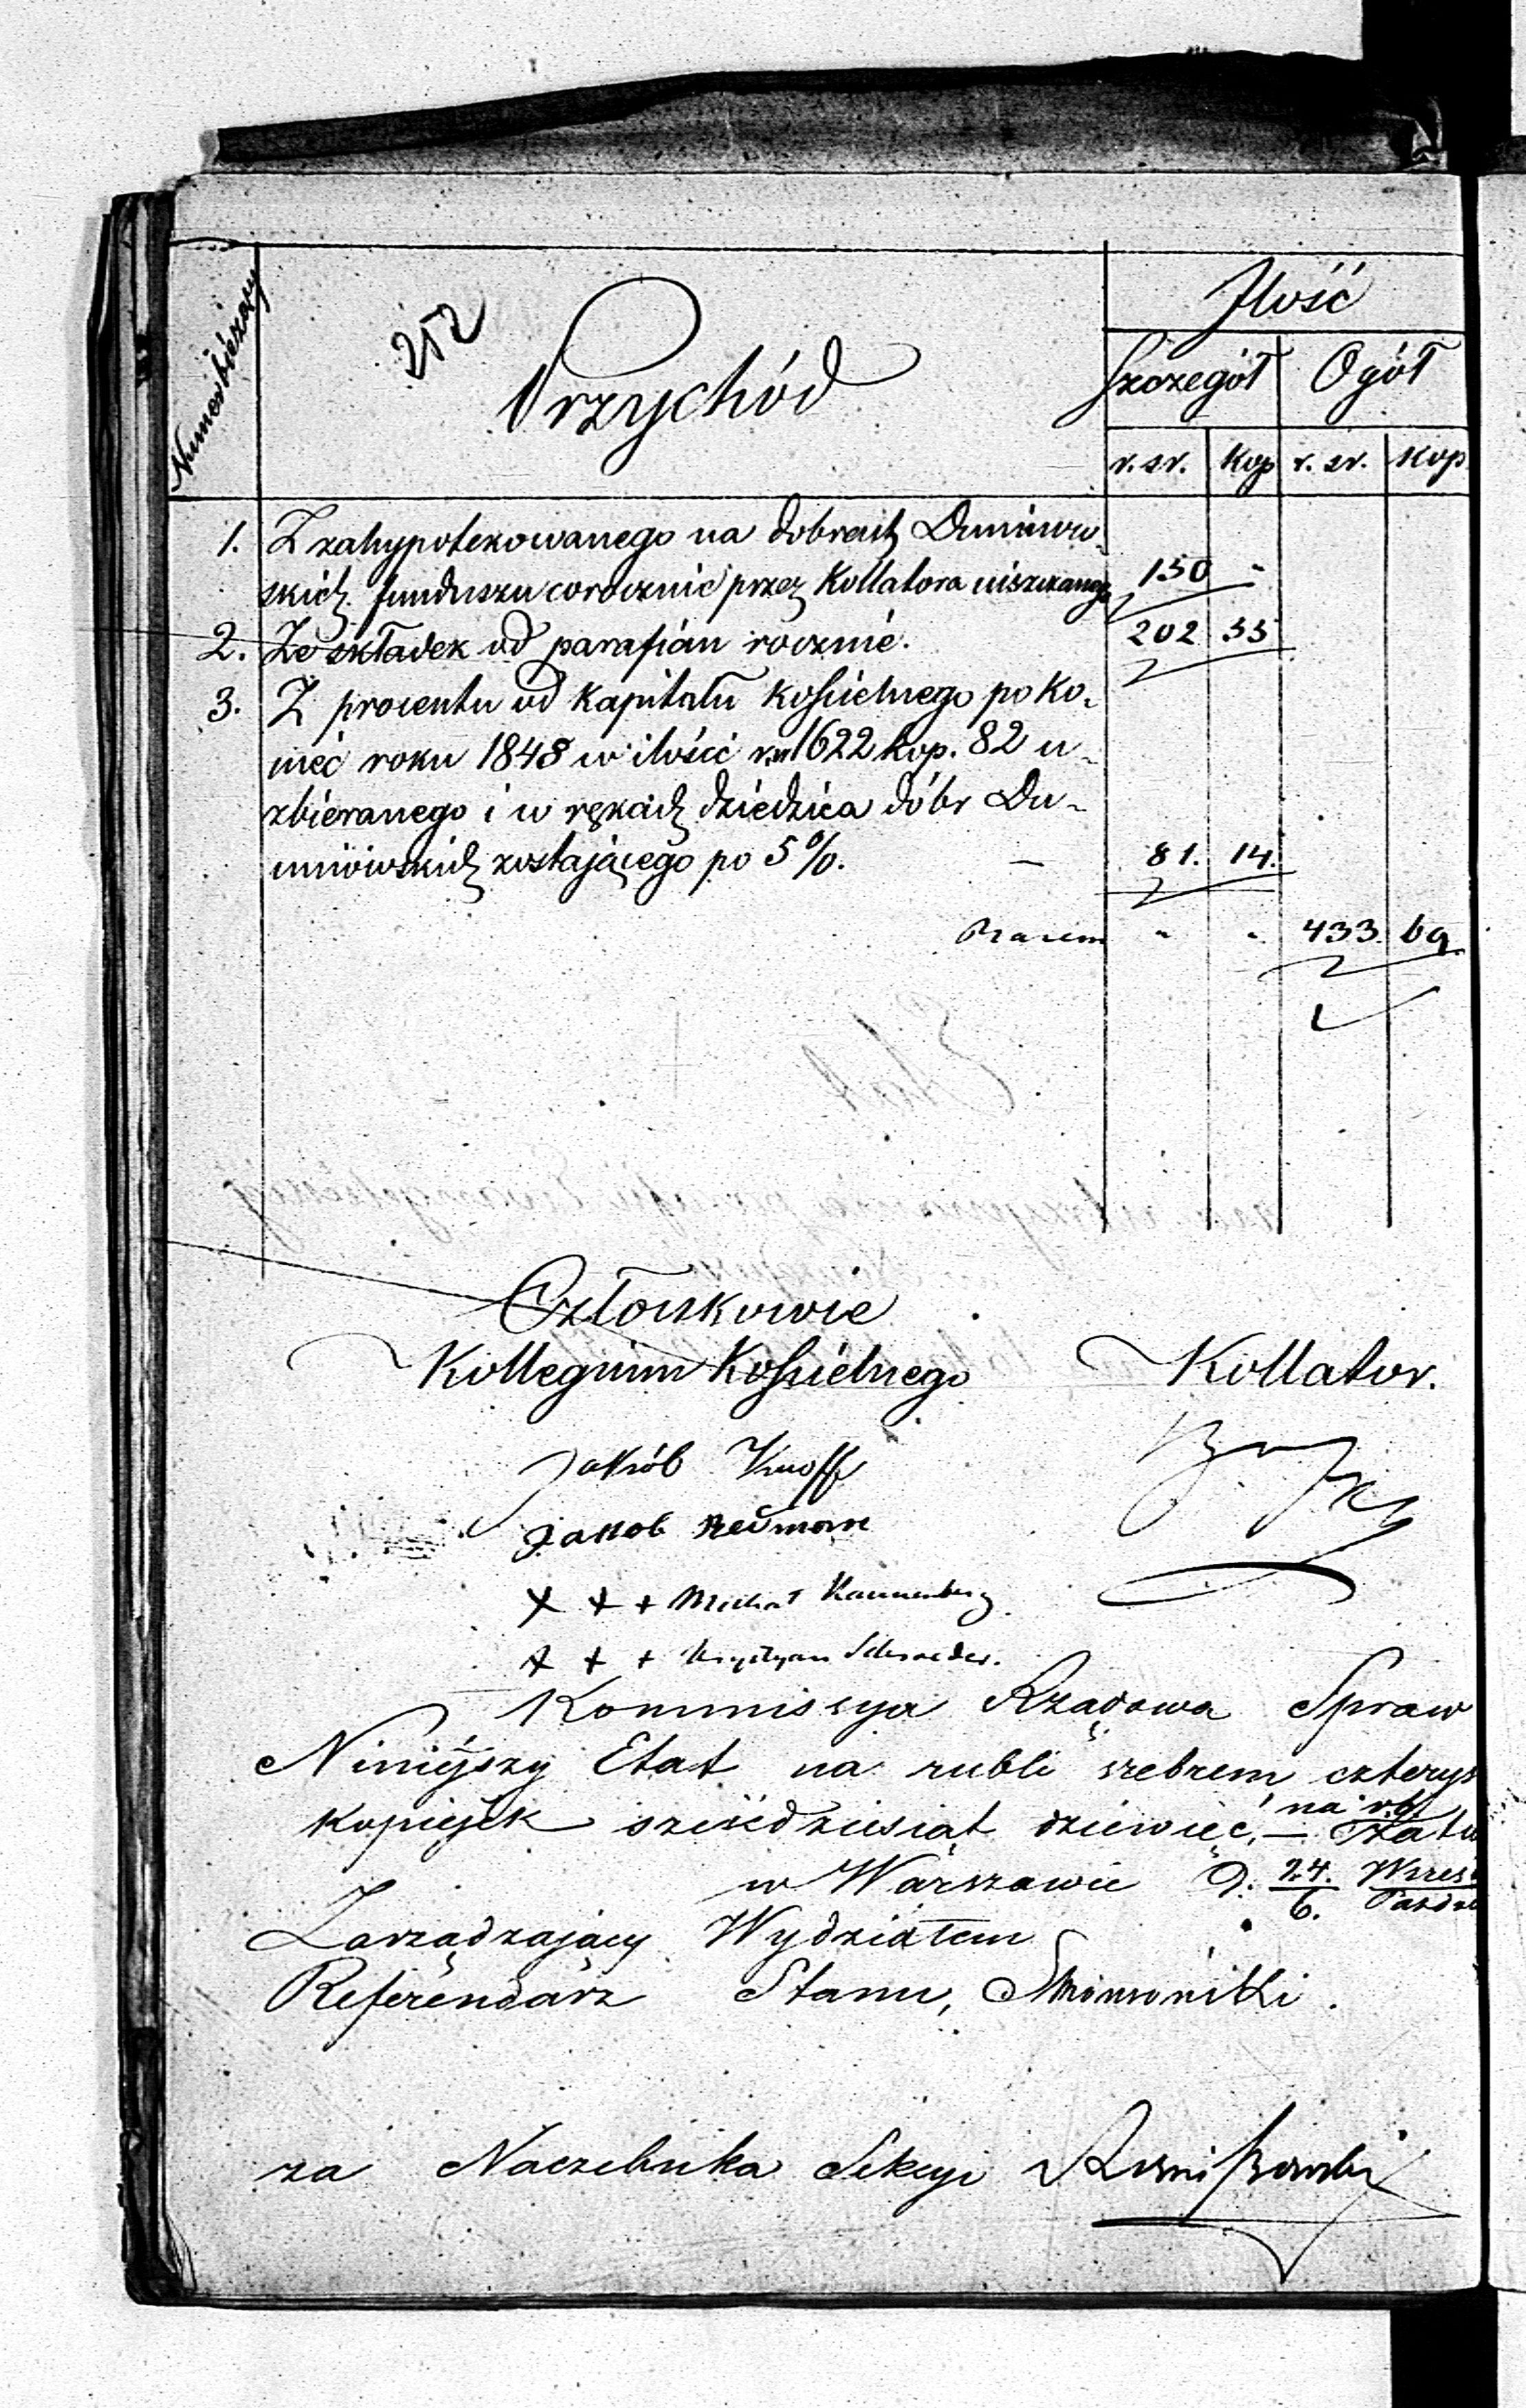 252
Numer bieżący
Przychód
Ilość
Szczegół Ogół
r. sr. Kop r. sr. Kop
1. Z zahypotekowanego na dobrach Duninow-
skich funduszu corocznie przez Kollatora uiszczanego 150 "
2. Ze składek od parafian rocznie. 202 55
3. Z procentu od Kapitału Kościelnego po Ko-
niec roku 1848 w ilości r.sr. 1622 kop. 82 u-
zbieranego i w rękach dziedzica dóbr Du-
ninowskich zostającego po 5%. — 81. 14.
Razem " " 433. 69
Członkowie
Kollegium Kościelnego Kollator.
Jakób Knoff
Jakob Redman
+ + + Michał Kannenberg
+ + + Krystyan Schroeder.
Kommissya Rządowa Spraw
Niniéjszy Etat na rubli srebrem czterys
kopiejek sześćdziesiąt dziewięć, —
w Warszawie D. 24. Wrześ
6. Paźdz
Zarządzający Wydziałem
Referendarz Stanu,
za Naczelnika Sekcyi